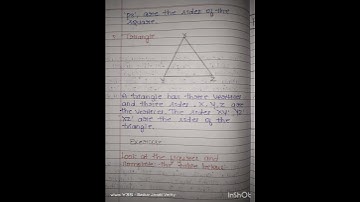 ps', are the sides of the
square.
Triangle
X
Y
Z
A triangle has three vertices
and three sides. X, Y, Z are
the vertices. The sides 'xy', 'yz'
'xz' are the sides of the
triangle.
Exercise
Look at the figures and
complete the table below
InShOt